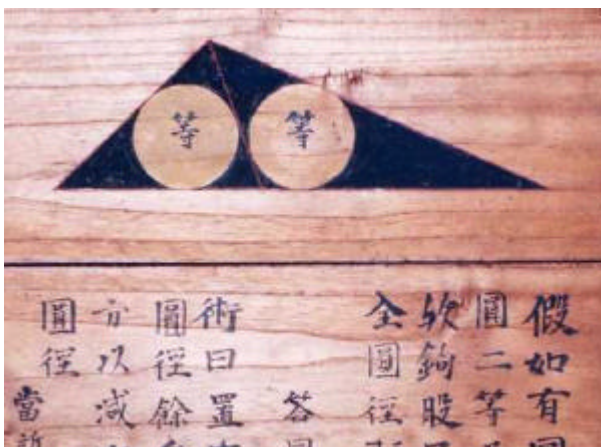 等 等
假如有圓
圓二等
欤鉤股
全圓徑
答
術曰置
圓徑餘
方以減
圓徑
當